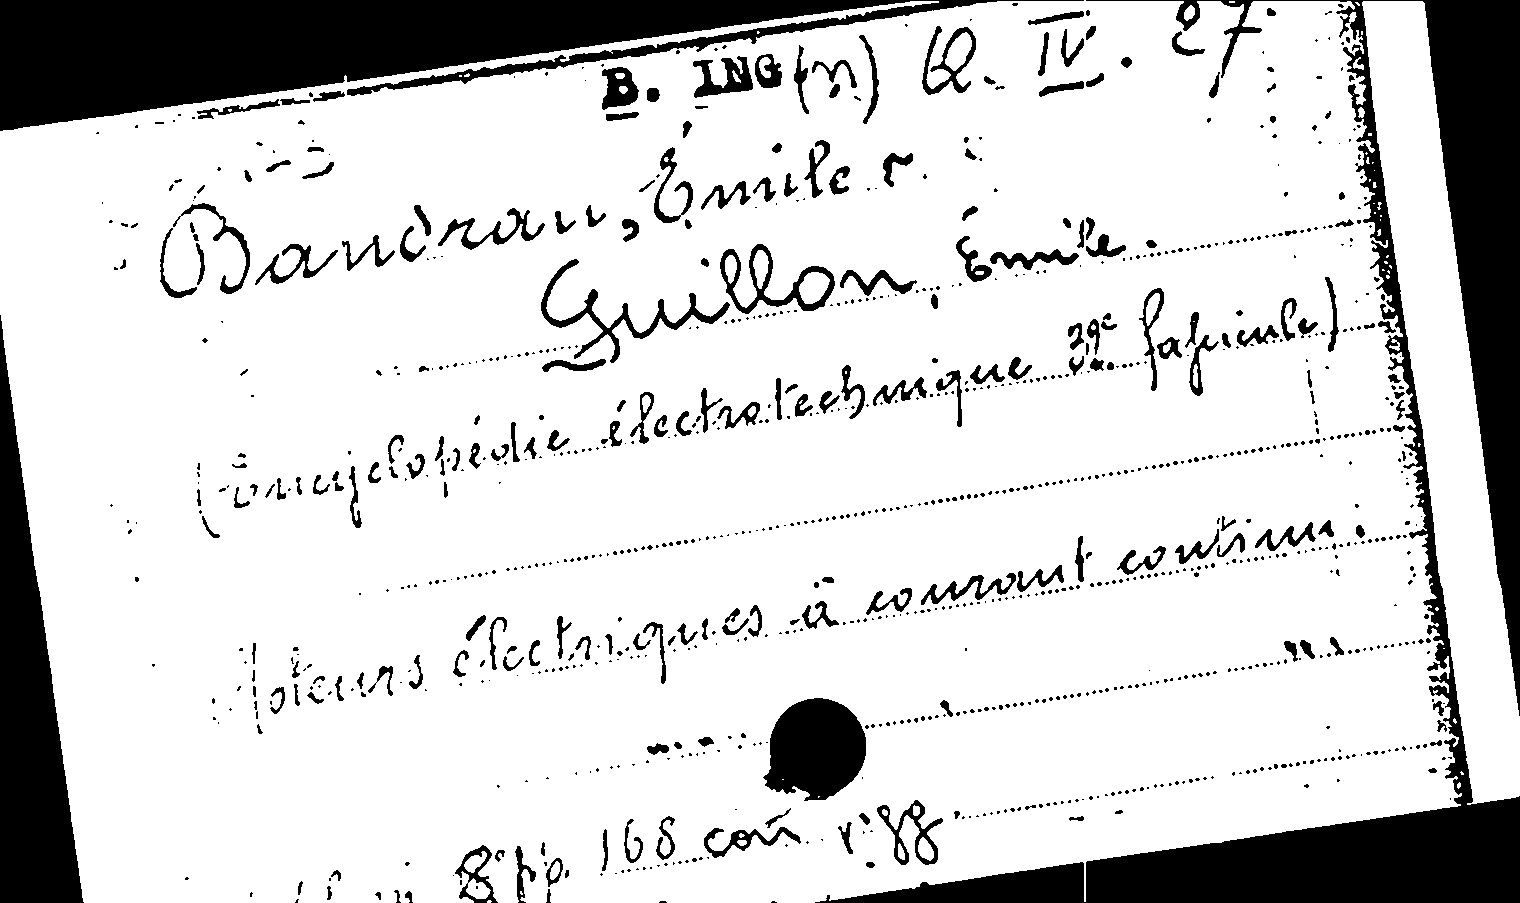 B. ING(n) Q. IV. 27.
Baudran, Émile v.
Guillon, Émile.
(Encyclopédie électrotechnique 39e fascicule)
Moteurs électriques à courant continu.
in 8° pp. 168 con figg.